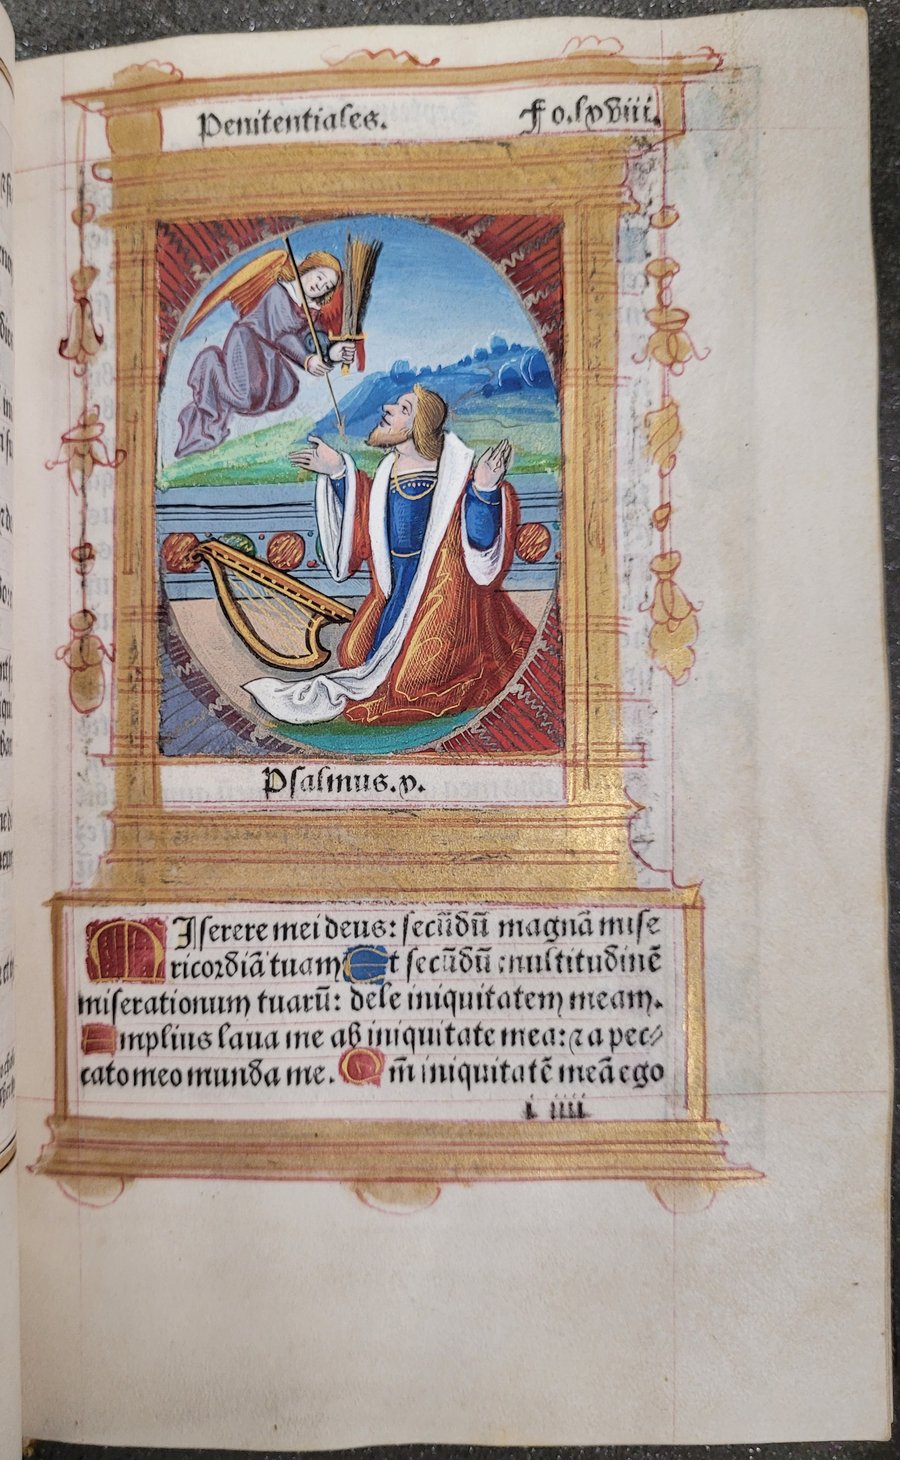 Penitentiales. Fo.lxviii.
Psalmus.l.
MIserere mei deus: secūdū magnā mise
ricordiā tuam Et secūdū multitudinē
miserationum tuarū: dele iniquitatem meam.
Amplius laua me ab iniquitate mea: ⁊ a pec⸗
cato meo munda me. Qm̄ iniquitatē meā ego
i iiii